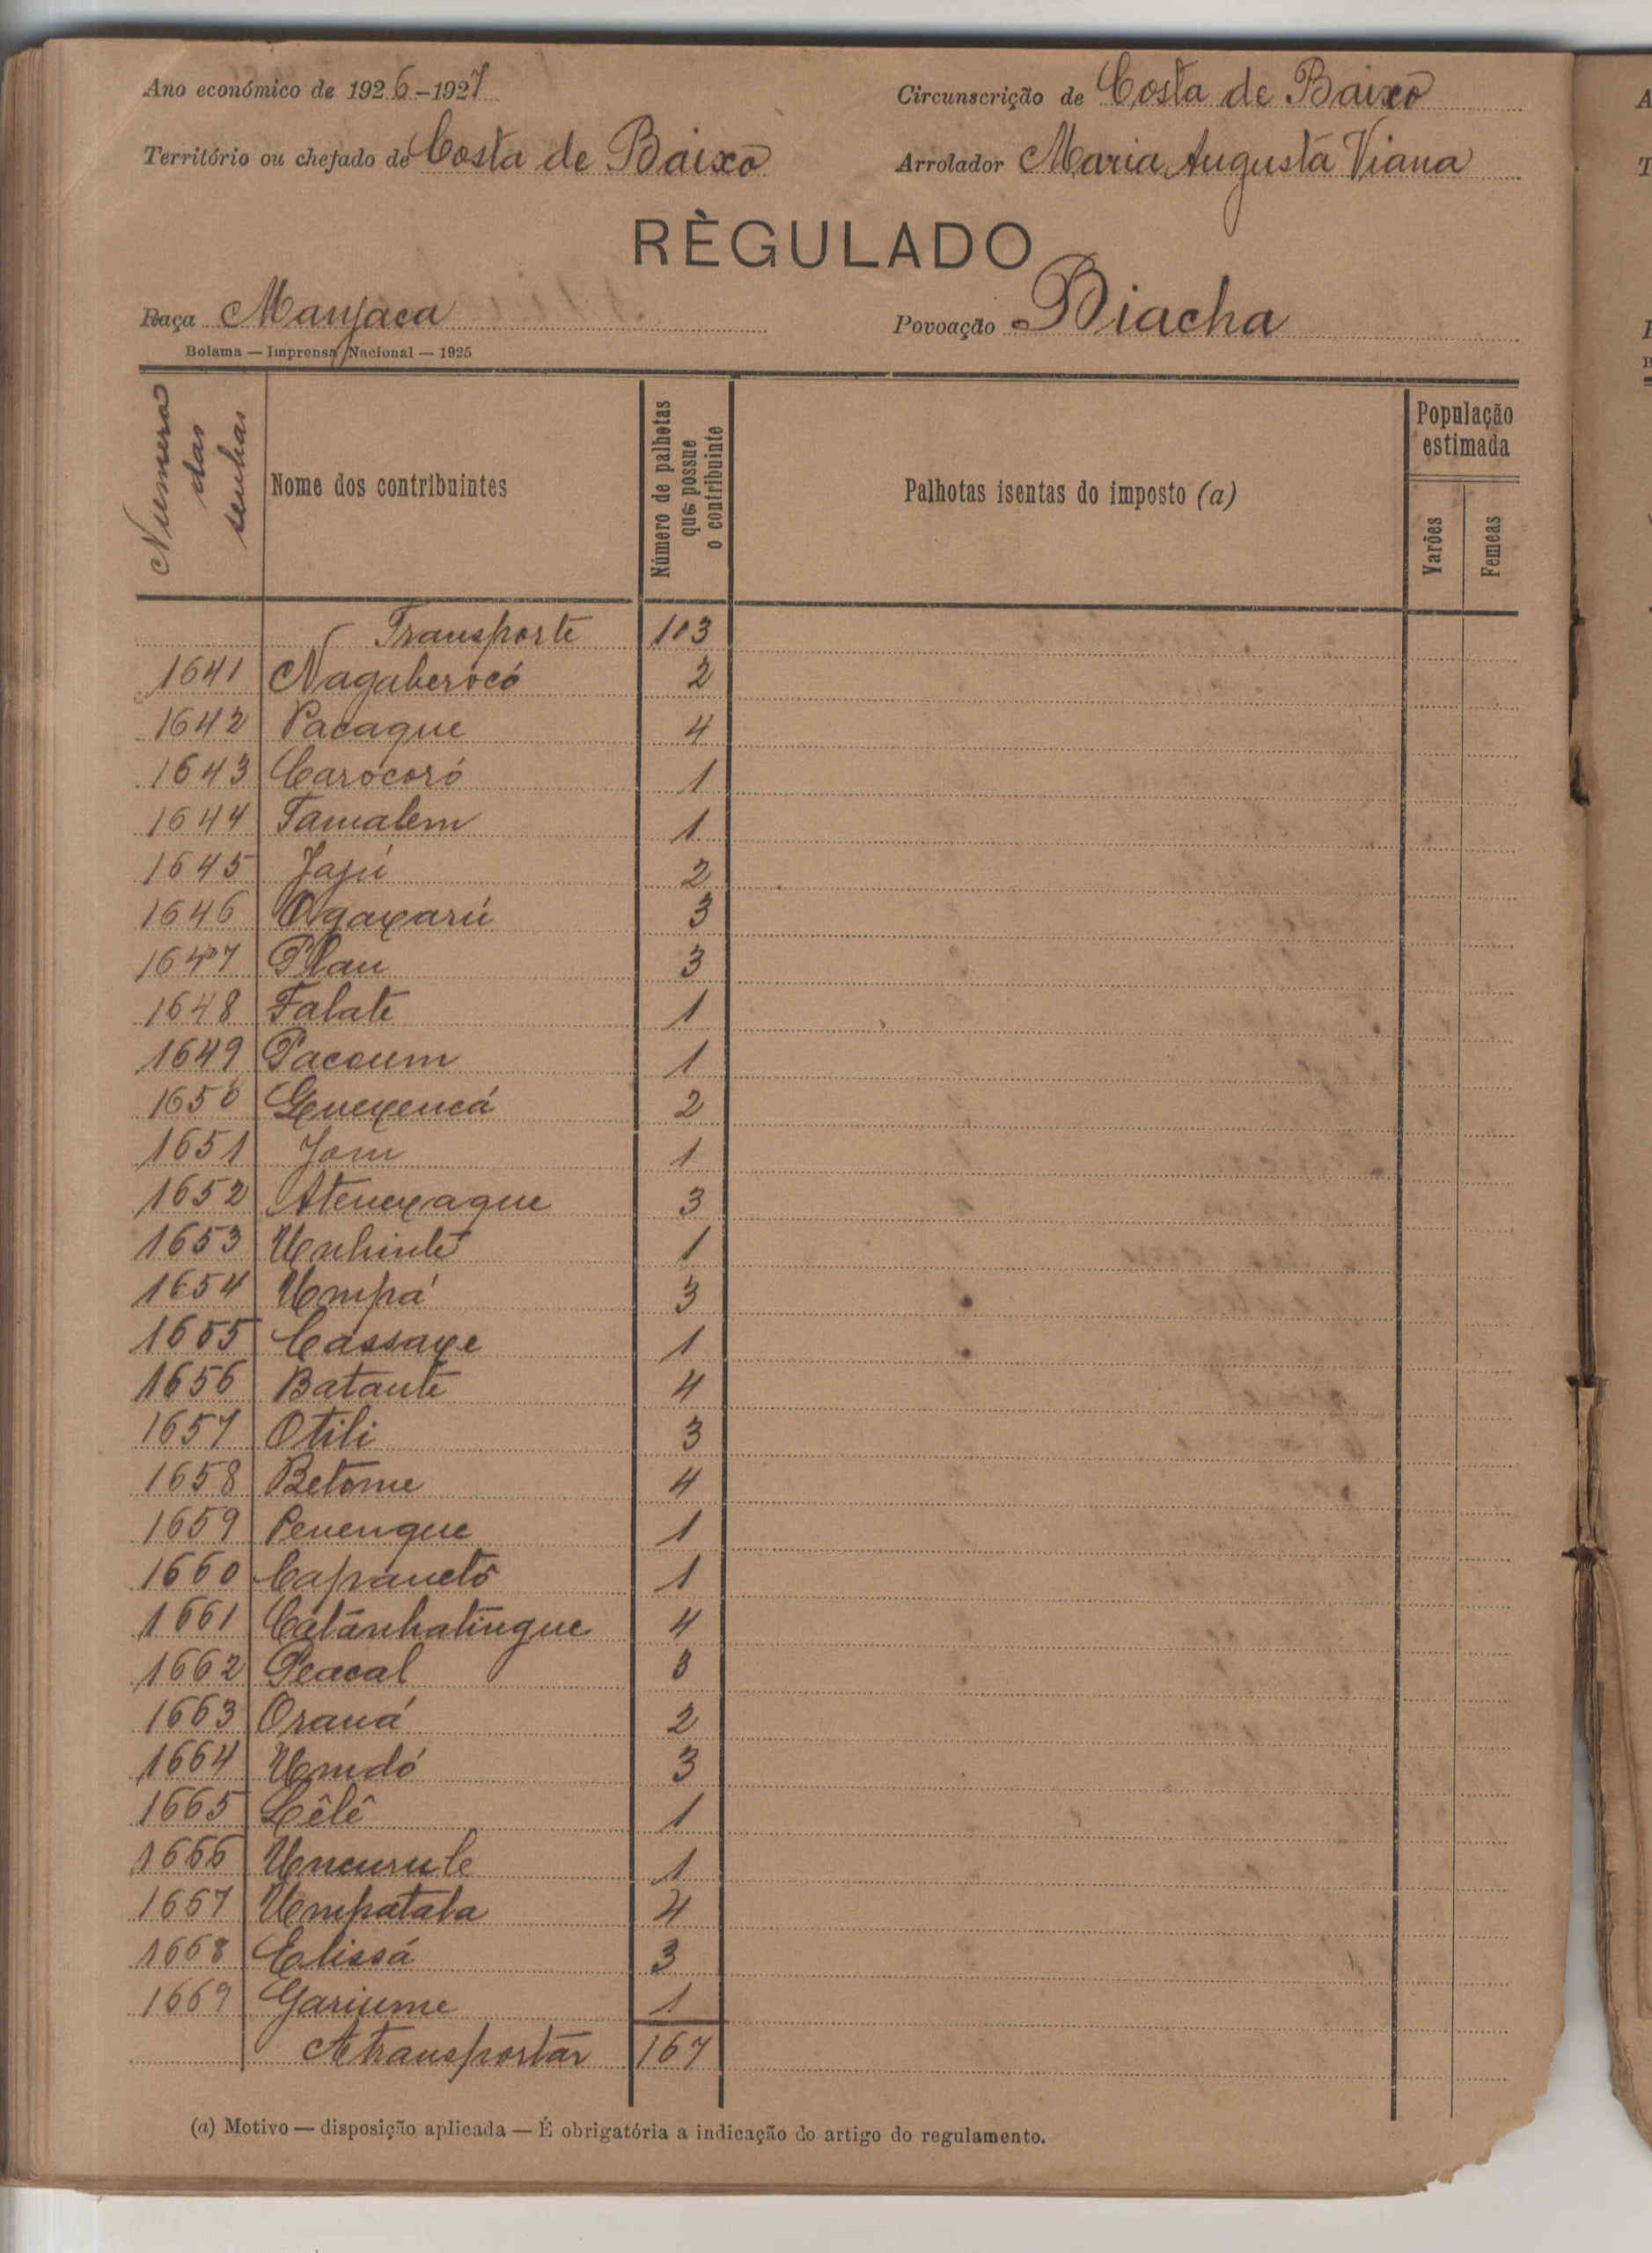 Ano económico de 1926-1927
Circunscrição de Costa de Baixo
Território ou chefado de Costa de Baixo
Arrolador Maria Augusta Viana
RÈGULADO
Raça Manjaca
Povoação Biacha
Bolama — Imprensa Nacional — 1925
Numero das senhas
Nome dos contribuintes
Número de palhotas que possue o contribuinte
Palhotas isentas do imposto (a)
População estimada
Varões
Femeas
Transporte 103
1641 Nagaberocó 2
1642 Pacaque 4
1643 Carocoró 1
1644 Tamalem 1
1645 Jajú 2
1646 Ogaxarú 3
1647 Plau 3
1648 Falate 1
1649 Pacoum 1
1650 Guexencá 2
1651 Jom 1
1652 Atenexaque 3
1653 Unhinte 1
1654 Umpá 3
1655 Cassaxe 1
1656 Batante 4
1657 Otili 3
1658 Betome 4
1659 Penengue 1
1660 Capancto 1
1661 Catanhatingue 4
1662 Peacal 3
1663 Oraná 2
1664 Umdó 3
1665 Lêlê 1
1666 Uncurule 1
1667 Umpatala 4
1668 Elissá 3
1669 Gariume 1
A transportar 167
(a) Motivo — disposição aplicada — É obrigatória a indicação do artigo do regulamento.